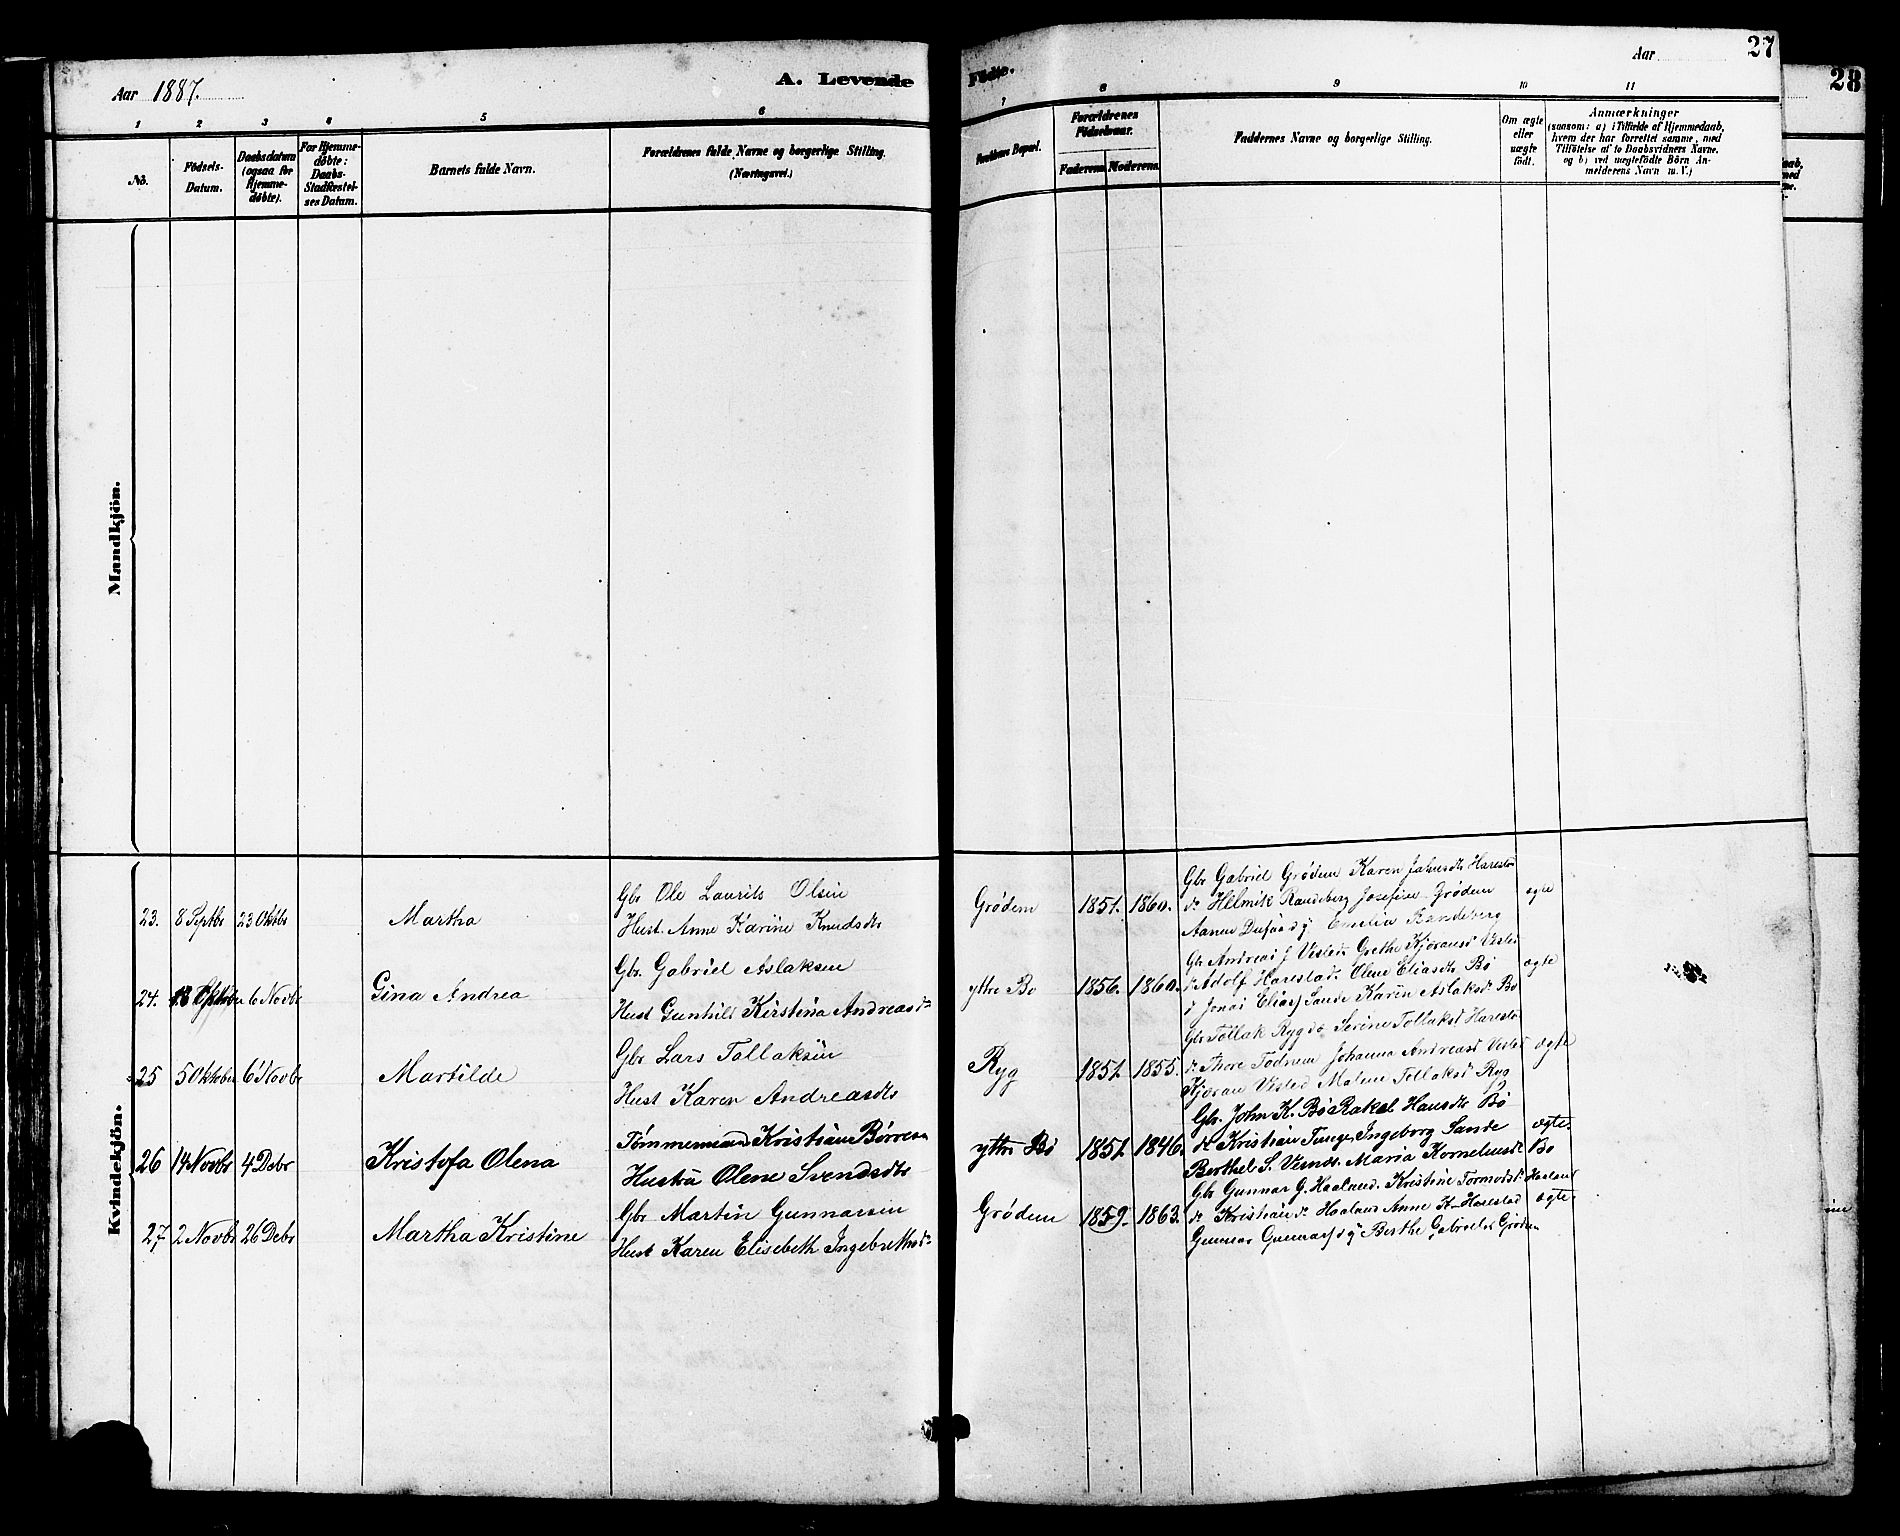 Aar 1887.
A. Levende
Födte.
Aar
27
28
1 2 3 4 5 6
7 8 9 10 11
No.
Födsels-
Datum.
Daabsdatum
(ogsaa for
Hjemme-
døbte).
For Hjemme-
døbte:
Daabs-
Stadfæstel-
ses Datum.
Barnets fulde Navn.
Forældrenes fulde Navne og borgerlige Stilling.
(Næringsvei.)
Forældrenes
Födselsaar.
Faderens. Moderens.
Faddernes Navne og borgerlige Stilling.
Om ægte
eller
uægte
født.
Anmærkninger
(saasom: a) i Tilfælde af Hjemmedaab,
hvem der har forrettet samme, med
Tilföielse af to Daabsvidners Navne.
og b) ved uægtefödte Börn An-
melderens Navn m. V.)
Mandkjön.
Kvindekjön.
23. 8 Septbr 23 Oktbr Martha
Gbr Ole Laurits Olsen
Hust. Anne Karine Knudsdtr
Grödem 1851. 1860.
Gbr Gabriel Grødem Karen Harestad
Helmik Randeberg Josefine Grødem
Emilia Randeberg
ægte
24. 6 Novbr Gina Andrea
Gbr. Gabriel Aslaksen
Hust Gunhild Kirstina Andreasdr
ytre Bø 1856. 1860.
Gbr Andreas J Vistad Grethe
Adolf Harestad. Olene Eliasdtr Bø
Jonas Sande Karen Aslaksdr Bø
ægte
25 5 Oktober 6 Novbr Martilde
Gbr Lars Tollaksen
Hust Karen Andreasdtr
Ryg 1851 1855.
Gbr Tollak Ryg Serine Tollaksd Harestad
Thore Todnem Johanna Andreasd
Malene Tollaksd Ryg
ægte
26 14 Novbr 4 Debr Kristofa Olena
Tømmermand Kristian Børresen
Hustru Olene Svendsdtr
ytre Bø 1851 1846.
Gbr. John K. Bø Rakel Hansdtr Bø
Kristian Tunge, Ingeborg Sande
Berthel S. Maria Korneliusdr Bø
ægte.
27 2 Novbr 26 Debr Martha Kristine
Gbr Martin Gunnarsen
Hust Karen Elisebeth Ingebrethsdr
Grödem 1859. 1863.
Gbr Gunnar G. Haaland. Kristine Tormodsd Haaland
Kristian Haaland Anne K Harestad
Gunnar Berthe Grödem
ægte